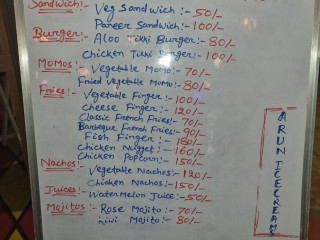 Sandwich:- Veg Sandwich:- 50/-
Paneer Sandwich:- 100/-
Burger:- Aloo Tikki Burger:- 80/-
Chicken Tikki Burger:- 100/-
MoMos:- Vegetable Momo:- 70/-
Fried Vegetable Momo:- 80/-
Fries:- Vegetable Finger:- 100/-
Cheese Finger:- 120/-
Classic French Fries:- 70/-
Barbeque French Fries:- 90/-
Fish Finger:- 180/-
Chicken Nugget:- 160/-
Chicken Popcorn:- 150/-
Nachos:- Vegetable Nachos:- 120/-
Chicken Nachos:- 150/-
Juices:- Water Melon Juice:- 50/-
Mojitos:- Rose Mojito:- 70/-
Kiwi Mojito:- 80/-
ARUN ICECREAMS